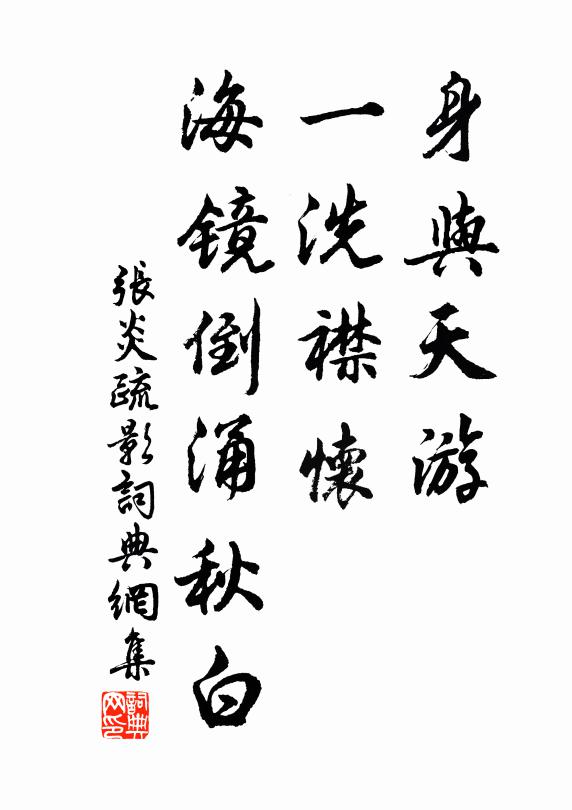 身與天游
一洗襟懷
海鏡倒涌秋白
張炎疏影詞典網集
詞典網印